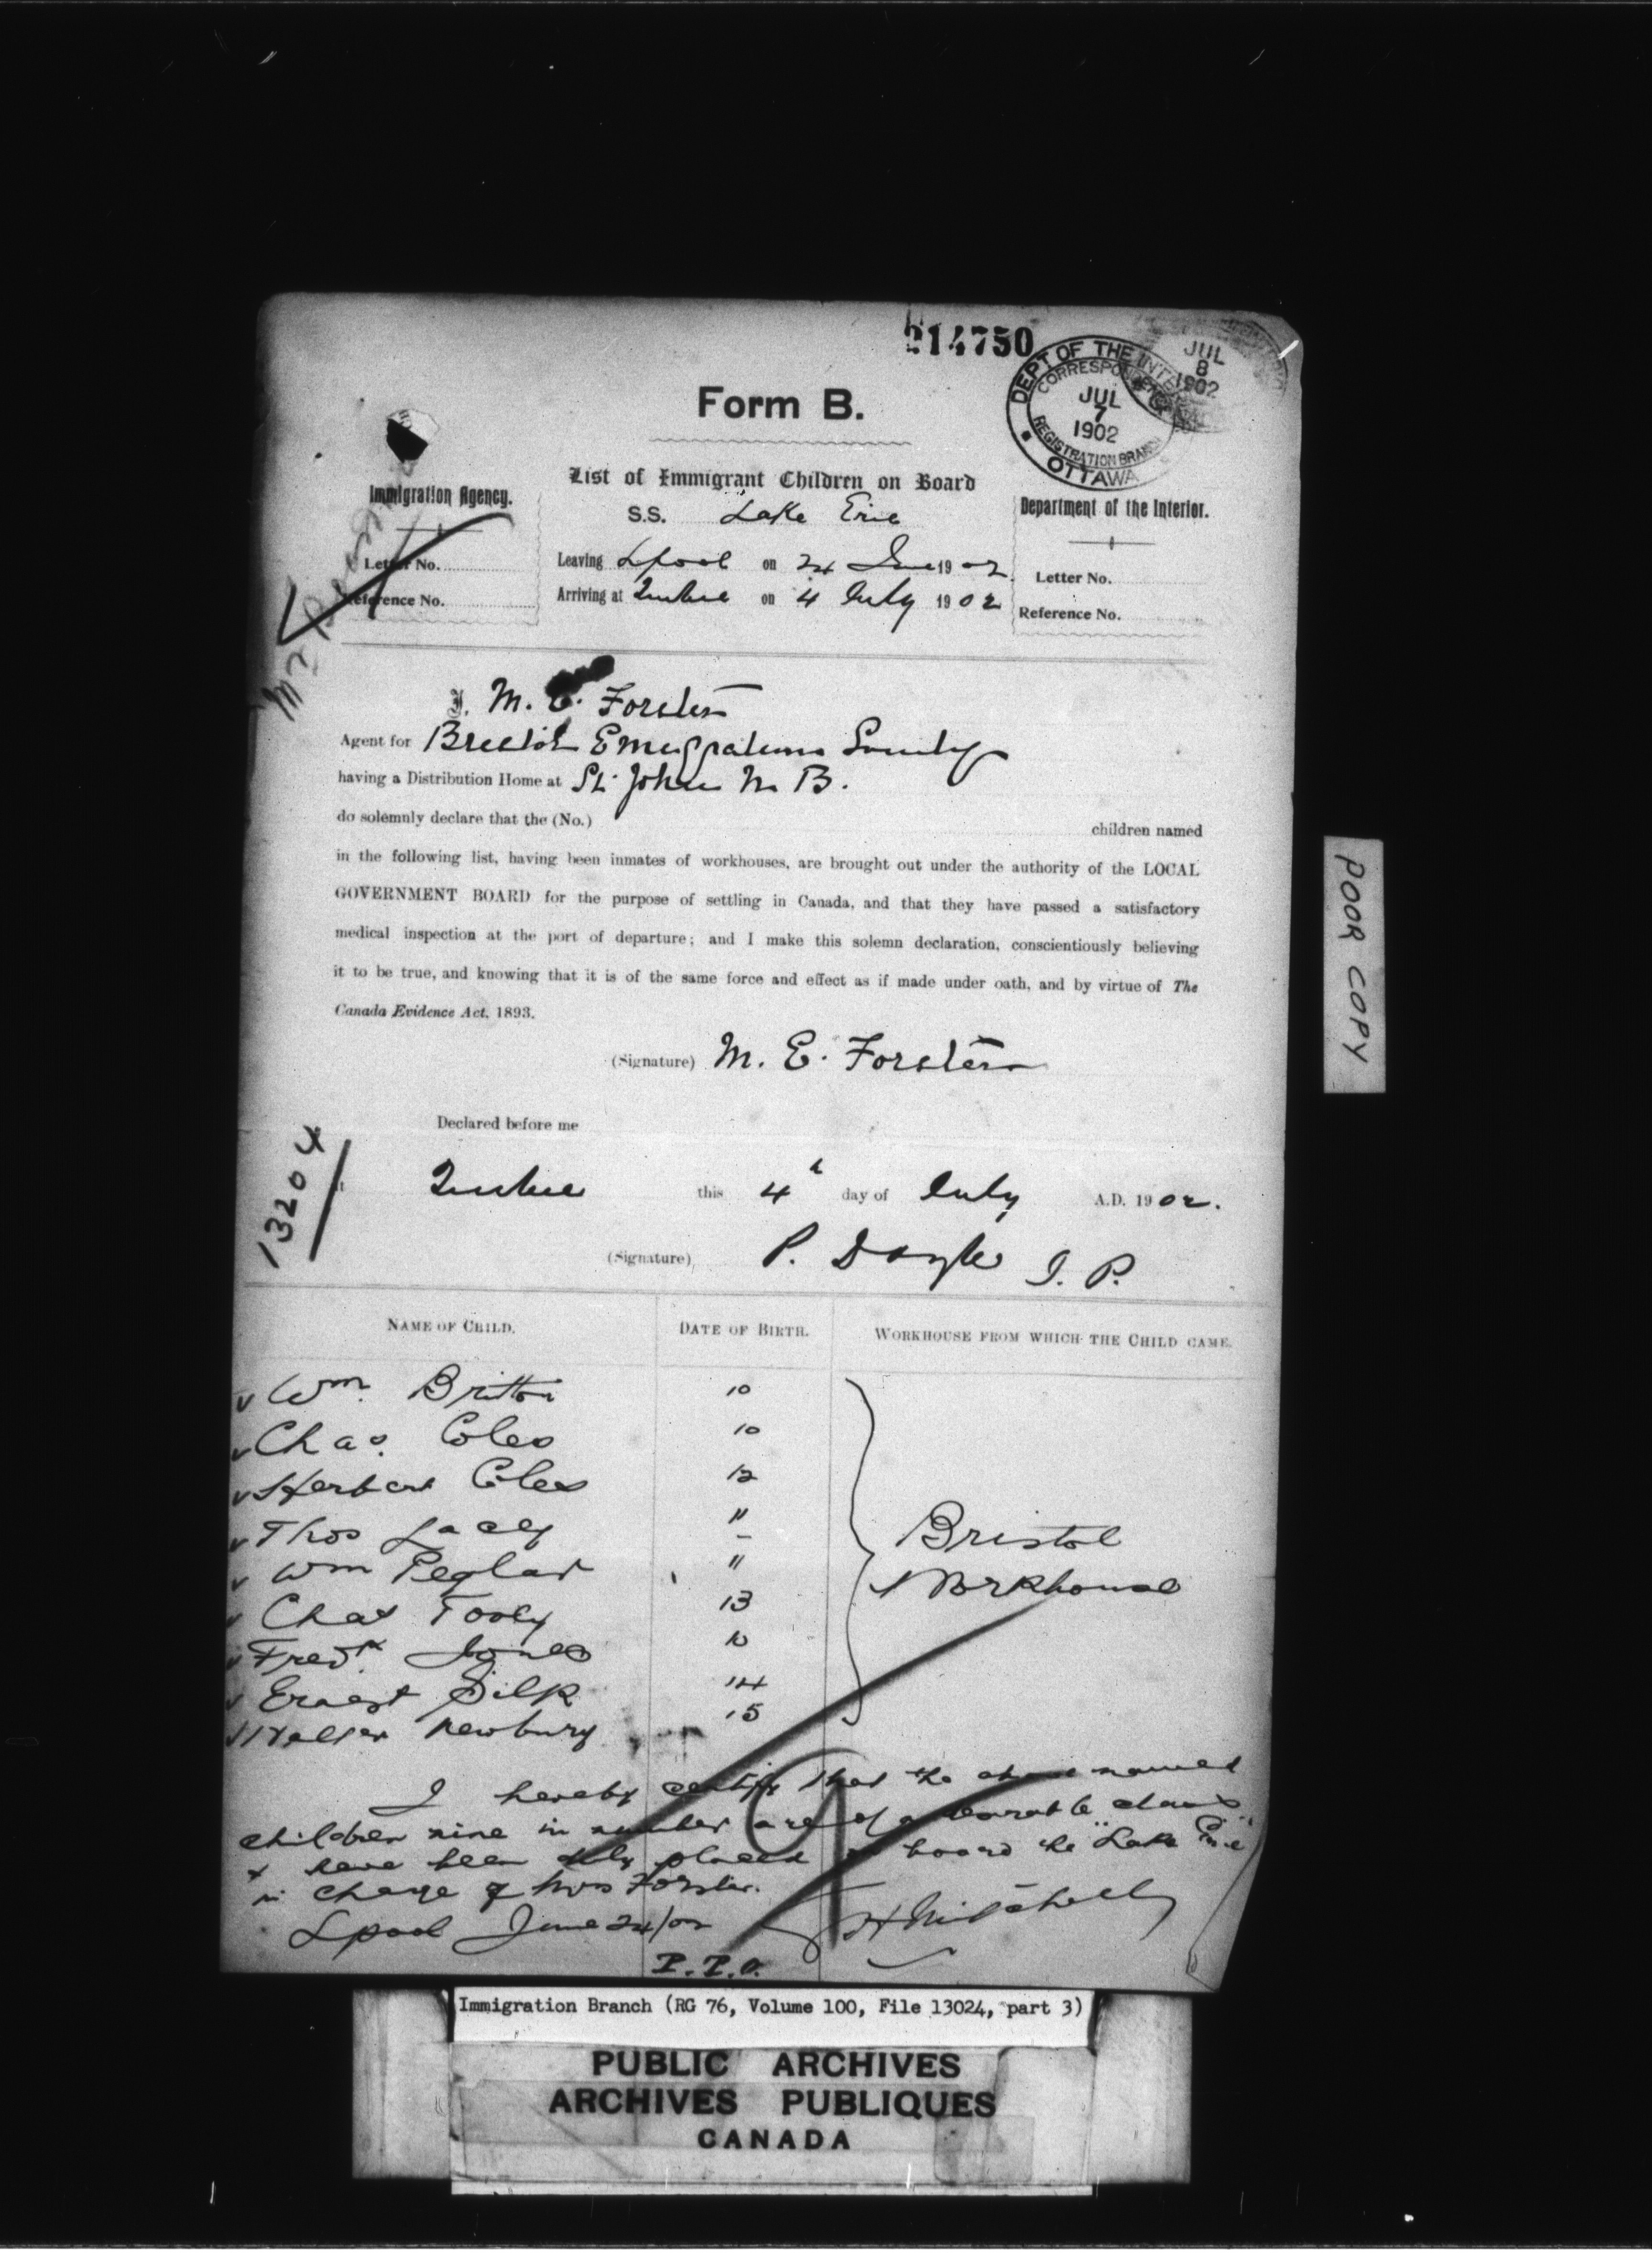 214750
DEPT OF THE INTERIOR
CORRESPONDENCE
JUL
7
1902
REGISTRATION BRANCH
OTTAWA
JUL
8
1902
Form B.
List of Immigrant Children on Board
S.S. Lake Erie
Leaving Lpool on 24 June 1902.
Arriving at Quebec on 4 July 1902
Immigration Agency.
Letter No.
Reference No.
Department of the Interior.
Letter No.
Reference No.
I, M. E. Forster
Agent for Bristol Emigration Society
having a Distribution Home at St. John N. B.
do solemnly declare that the (No.) children named
in the following list, having been inmates of workhouses, are brought out under the authority of the LOCAL
GOVERNMENT BOARD for the purpose of settling in Canada, and that they have passed a satisfactory
medical inspection at the port of departure; and I make this solemn declaration, conscientiously believing
it to be true, and knowing that it is of the same force and effect as if made under oath, and by virtue of The
Canada Evidence Act, 1893.
(Signature) M. E. Forster
Declared before me
13204
Quebec this 4th day of July A.D. 1902.
(Signature) P. Doyle J. P.
NAME OF CHILD. DATE OF BIRTH. WORKHOUSE FROM WHICH THE CHILD CAME.
Wm. Britton 10
Chas. Coles 10
Herbert Coles 12
Thos Lacey 11
Wm Peglar 11
Chas Tooly 13
Fredk. Jones 10
Ernest Silk 14
Walter Newbury 15
Bristol
Workhouse
I hereby certify that the above named
children nine in number are of a desirable class
& have been duly placed on board the "Lake Erie"
in charge of Mrs Forster.
Lpool June 24/02 H Mitchell
P.T.O.
9
POOR COPY
Immigration Branch (RG 76, Volume 100, File 13024, part 3)
PUBLIC ARCHIVES
ARCHIVES PUBLIQUES
CANADA